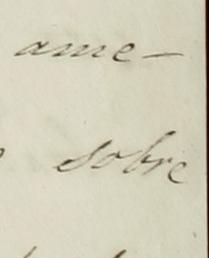 ame-
sobre